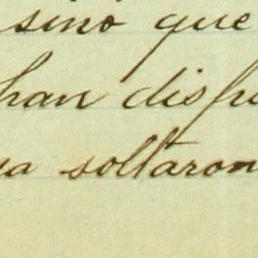 sino que
han disp
ua soltaron